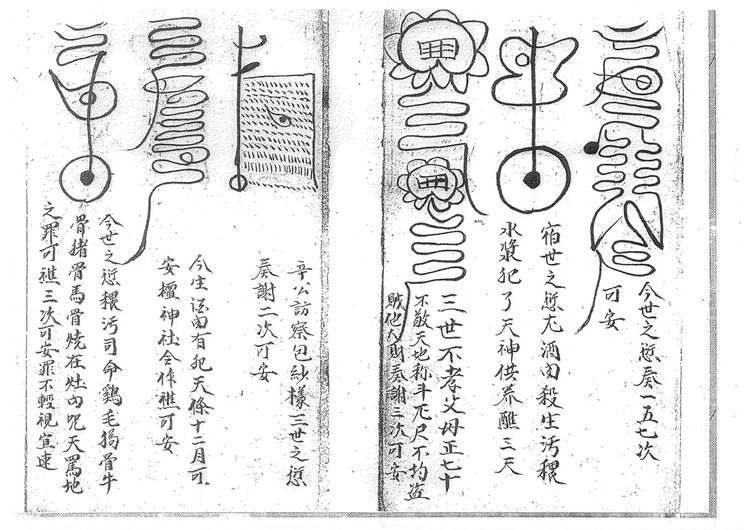 今世之愆奏一五七次
可安
宿世之愆尤酒肉殺生污穢
水漿犯了天神供养醮三天
三世不孝父母正七十
不敬天也称斗尺不均盜
賊他人財奏謝三次可安
辛公訪察包紗樣三世之愆
奏謝二次可安
今生酒肉有犯天條十二月可
安壇神社令作醮可安
今世之愆穢污司命鷄毛狗骨牛
骨猪骨馬骨燒在灶内咒天罵地
之罪可醮三次可安罪不輕視宜速